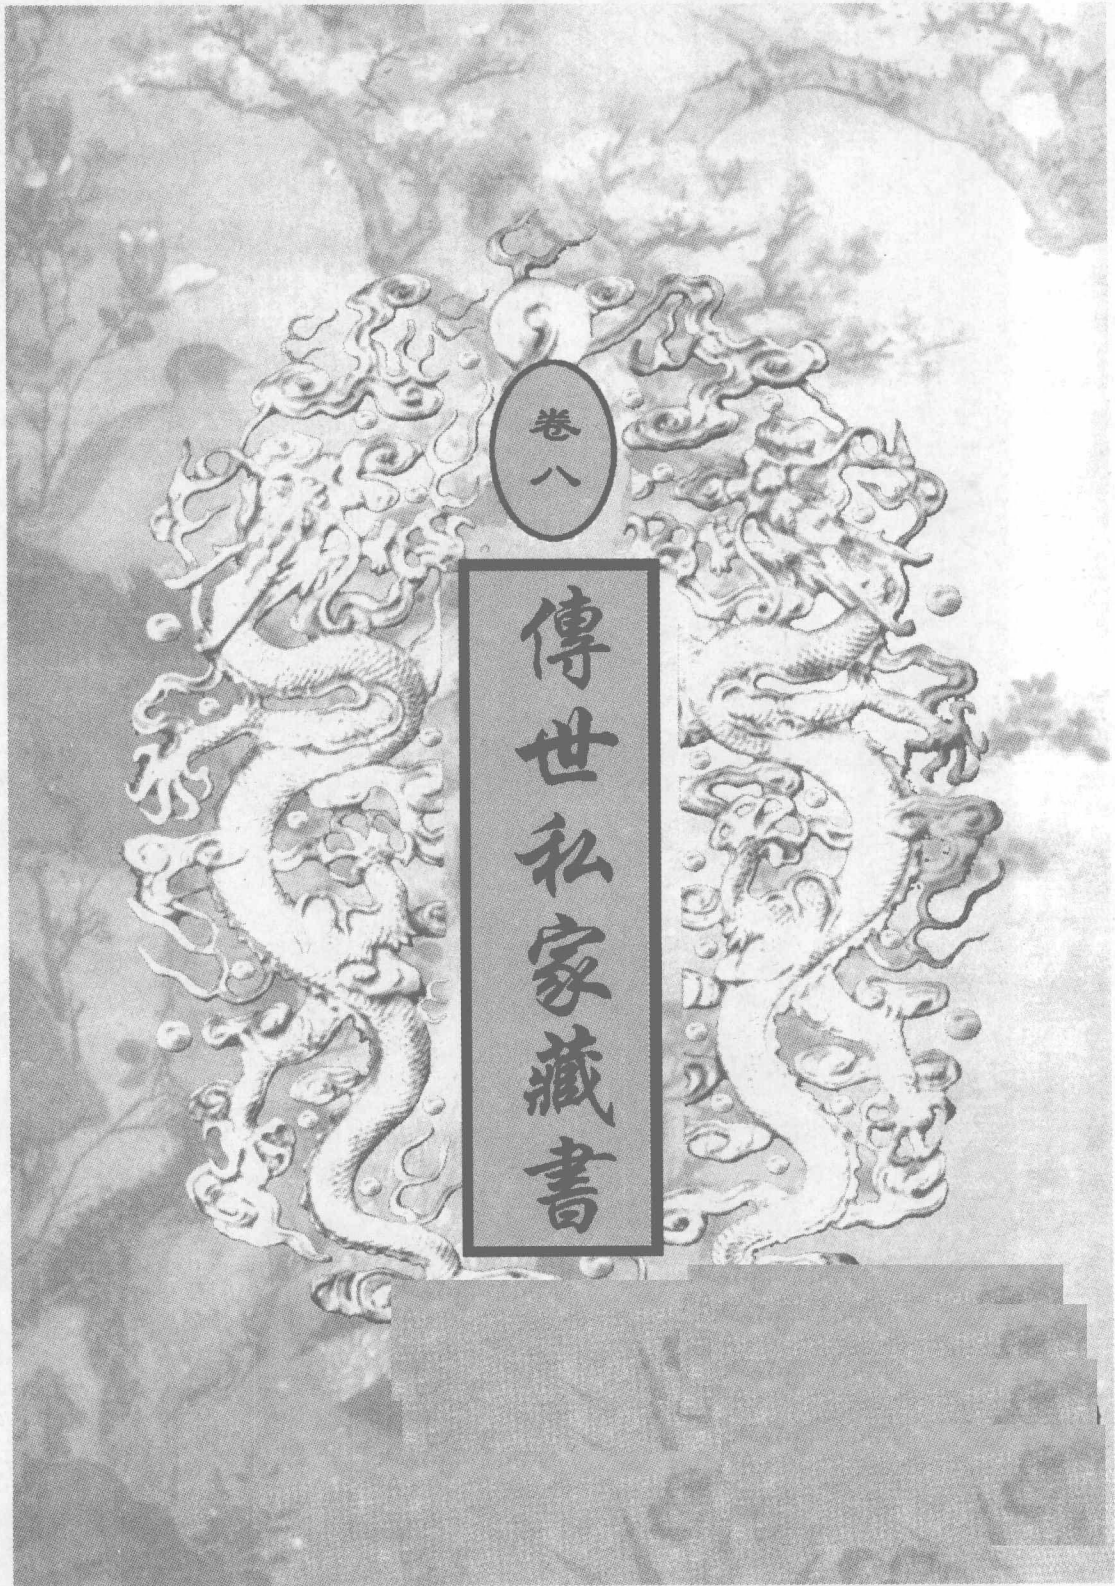 卷八
傳世私家藏書